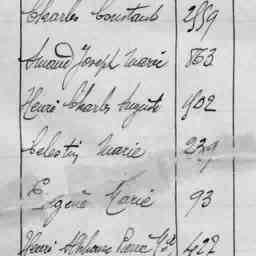 Charles Constant 2559
Armand Joseph Marie 863
Henri Charles Auguste 802
Celestin Marie 239
Eugène Marie 93
Henri Alphonse Pierre 422